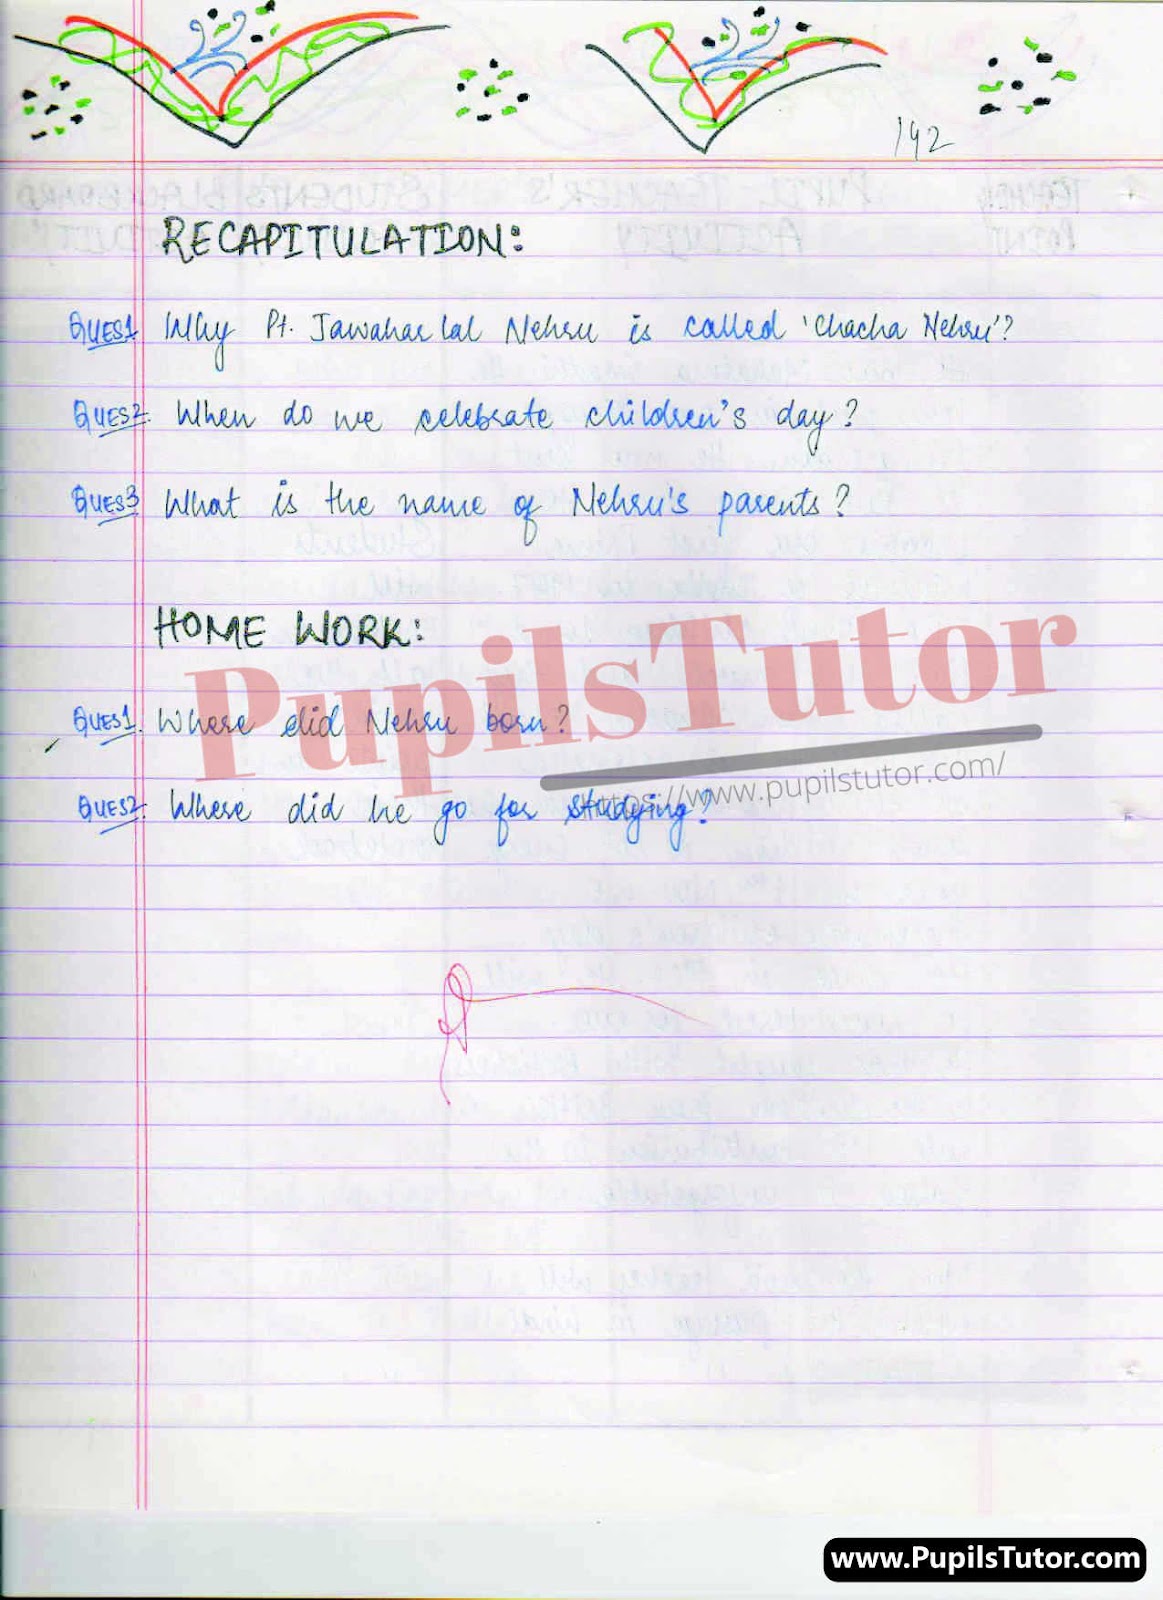 142
RECAPITULATION:
QUES1 Why Pt. Jawahar lal Nehru is called 'Chacha Nehru'?
QUES2. When do we celebrate children's day?
QUES3 What is the name of Nehru's parents?
HOME WORK:
PupilsTutor
QUES1. Where did Nehru born?
https://www.pupilstutor.com/
QUES2. Where did he go for studying?
www.PupilsTutor.com